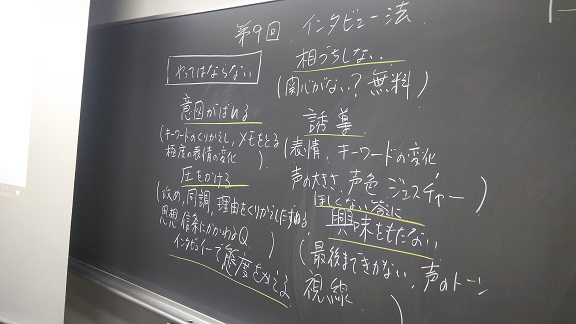 第9回 インタビュー法
やってはならない
意図がばれる
(キーワードのくりかえし,メモをとる
極度の表情の変化)
圧をかける
(攻め,同調,理由をくりかえしたずねる
思想 信条にかかわるQ)
インタビュイーで態度をかえる
相づちしない
(関心がない?無料)
誘導
(表情,キーワードの変化
声の大きさ,声色 ジェスチャー)
ほしくない答に
興味をもたない
(最後まできかない,声のトーン
視線)